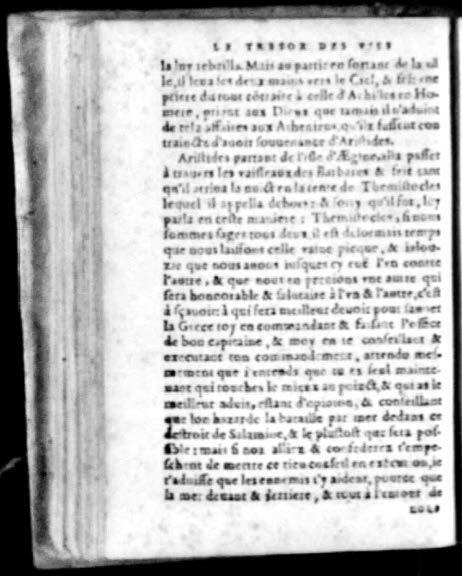 LE TRESOR DES VIES
la luy rebailla. Mais au partir en sortant de la vil
le, il leua ses deux mains vers le Ciel, & feit vne
priere du tout cõtraire à celle d'Achilles en Ho-
mere, priant aux Dieux que iamais il n'aduint
de telz affaires aux Atheniens, qu'ilz fussent con
traincts d'auoir souuenance d'Aristides.
Aristides partant de l'isle d'Ægine, alla passer
à trauers les vaisseaux des Barbares & feit tant
qu'il arriua la nuict en la tente de Themistocles
lequel il appella dehors: & sorty qu'il fut, luy
parla en ceste maniere: Themistocles, si nous
sommes sages tous deux, il est desormais temps
que nous laissons celle vaine picque, & ialou-
zie que nous auons iusques cy euë l'vn contre
l'autre, & que nous en prenions vne autre qui
sera honnorable & salutaire à l'vn & l'autre, c'est
à sçauoir: à qui fera meilleur deuoir pour sauuer
la Grece toy en commandant & faisant l'office
de bon capitaine, & moy en te conseillant &
executant ton commandement, attendu mes-
mement que i'entends que tu es seul mainte-
nant qui touches le mieux au poinct, & qui as le
meilleur aduis, estant d'opinion, & conseillant
que lon hazarde la bataille par mer dedans ce
destroit de Salamine, & le plustost que sera pos-
sible: mais si noz alliez & confederez t'empe-
schent de mettre ce tien conseil en execution, ie
t'aduise que les ennemis t'y aident, pource que
la mer deuant & derriere, & tout à l'entour de